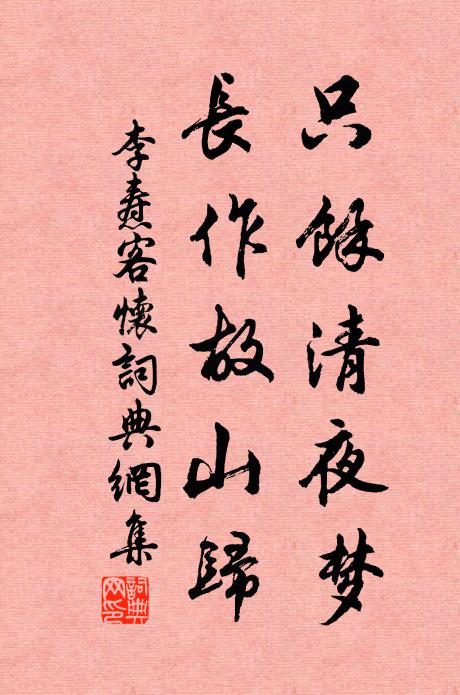 只餘清夜梦
長作故山歸
李燾客懷詞典網集
詞典网印